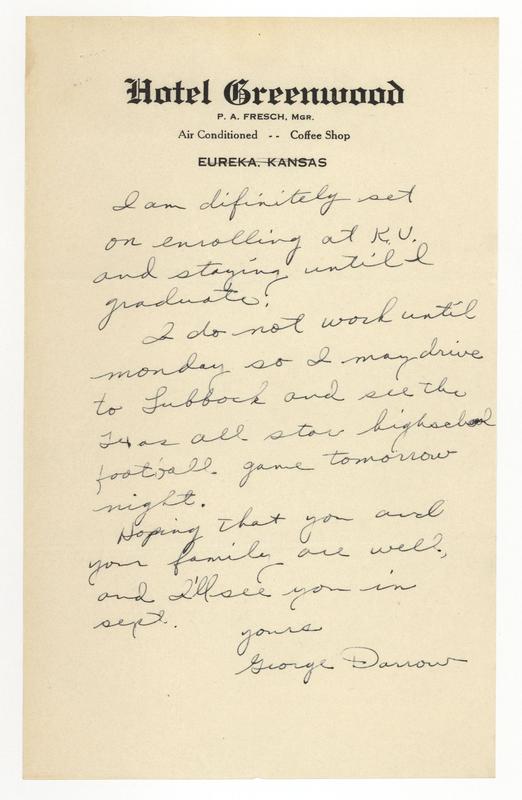 Hotel Greenwood
P. A. FRESCH, MGR.
Air Conditioned -- Coffee Shop
EUREKA, KANSAS
I am difinitely set
on enrolling at K.U.
and staying until I
graduate.
I do not work until
monday so I may drive
to Lubbock and see the
Texas all star highschool
football game tomorrow
night.
Hoping that you and
your family are well,
and I'll see you in
sept.
yours
George Darrow